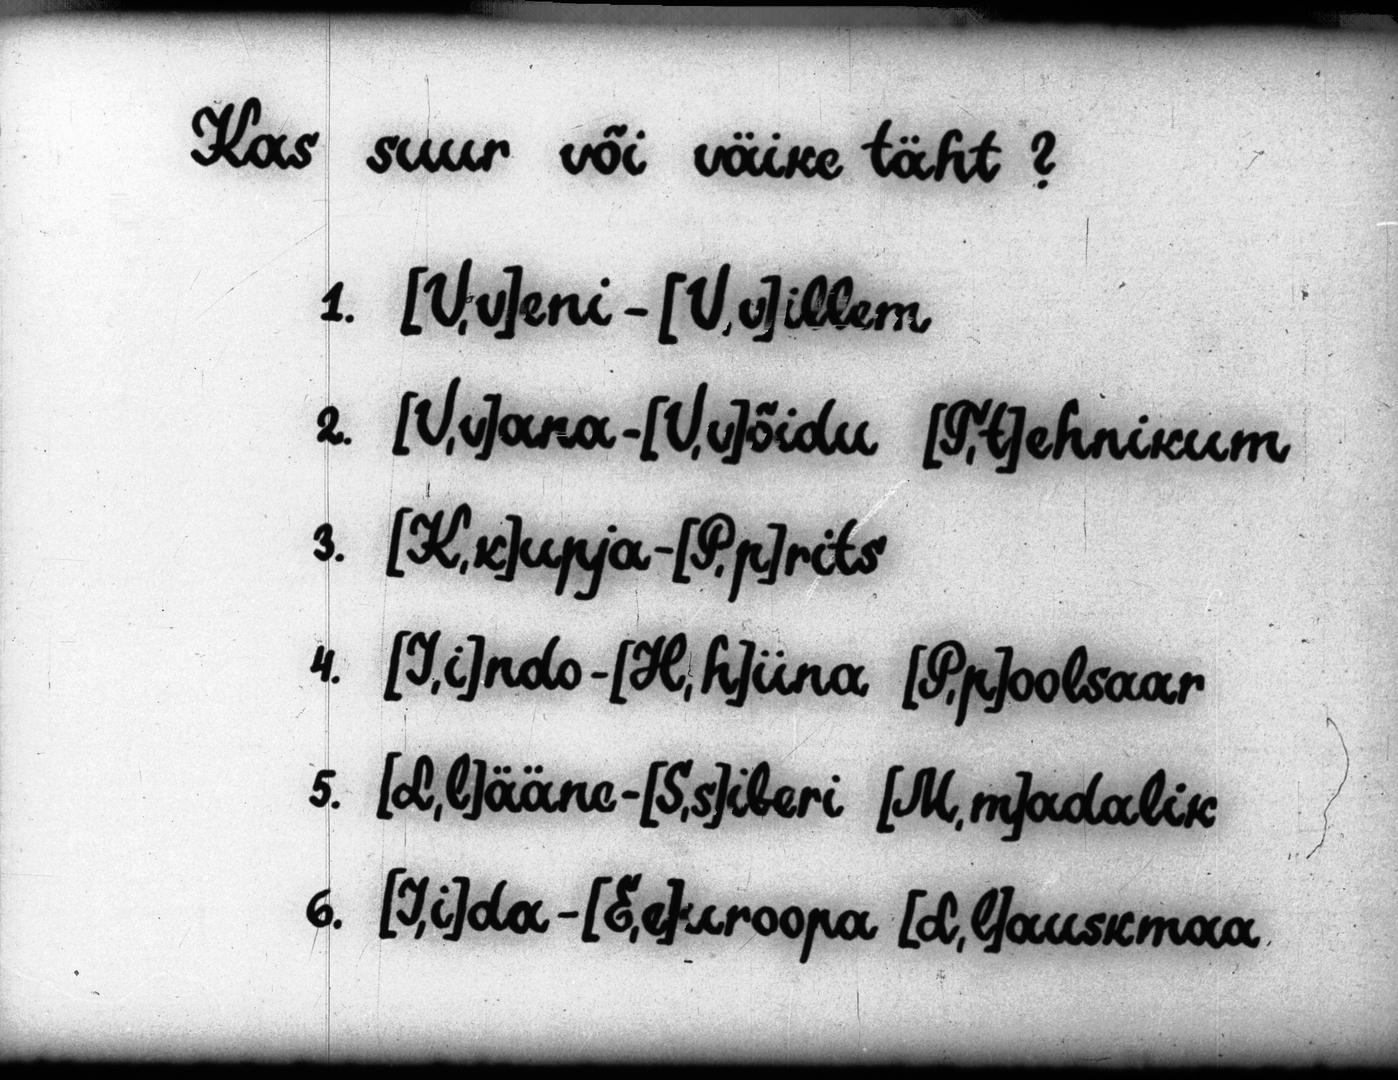 Kas suur või väike täht ?
1. [V,v]eni - [V,v]illem
2. [V,v]ana - [V,v]õidu [T,t]ehnikum
3. [K,k]upja - [P,p]rits
4. [I,i]ndo - [H,h]iina [P,p]oolsaar
5. [L,l]ääne - [S,s]iberi [M,m]adalik
6. [I,i]da - [E,e]uroopa [L,l]auskmaa